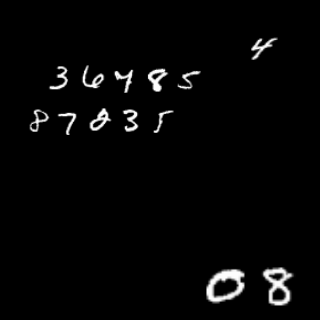 4
36485
87235
08